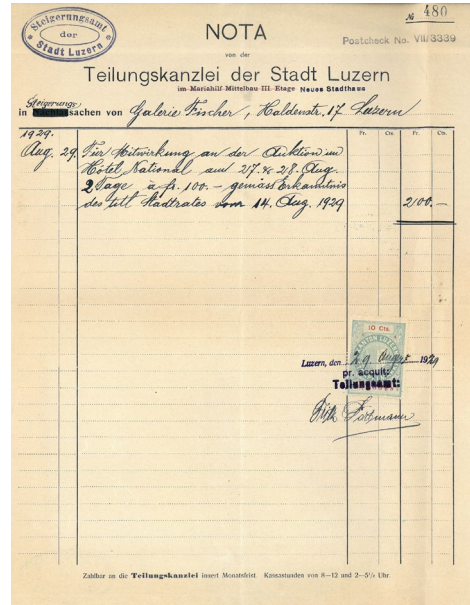 Steigerungsamt
der
Stadt Luzern
№ 480
NOTA
Postcheck No. VII/3339
von der
Teilungskanzlei der Stadt Luzern
im Mariahilf Mittelbau III. Etage Neues Stadthaus
Steigerungs
in sachen von Galerie Fischer, Haldenstr. 17 Luzern
1929. Fr. Cts. Fr. Cts.
Aug. 29. Für Mitwirkung an der Auktion im
Hôtel National am 27. & 28. Aug.
2 Tage à fr. 100.– gemäss Erkanntnis
des titl Stadtrates vom 14. Aug. 1929 200.–
10 Cts.
KANTON LUZERN
Luzern, den 29. August 1929
pr. acquit:
Teilungsamt:
Zahlbar an die Teilungskanzlei innert Monatsfrist. Kassastunden von 8–12 und 2–5½ Uhr.